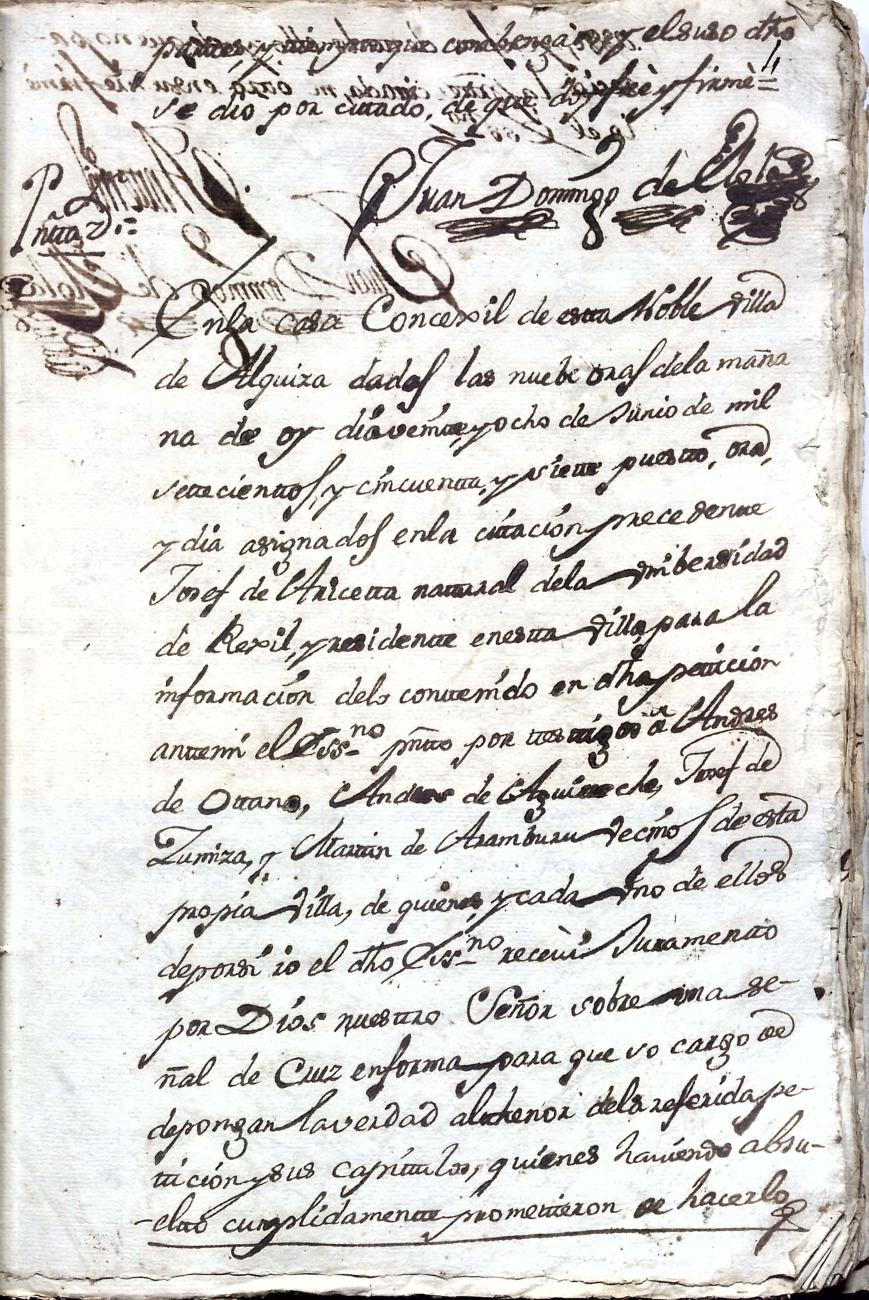 partes, y tiempo que combenga, y el suso dho
se dio por cittado, de que doy feè y firmè =
Juan Domingo de
Pñtta Ð.n:
En la casa Concexil de estta Noble Villa
de Alquiza dadas las nuebe oras dela maña
na de oy dia veintte, y ocho de Junio de mil
settecienttos, y cincuentta, y siette puestto, ora,
y dia asignados enla cittación precedentte
Josef de Aricetta nattural dela Vnibersidad
de Rexil, y residentte enestta Villa para la
información delo conttenido en dha petticion
anttemi el Essno pñtto por testtigos a Andres
de Ottano, Andres de Aguirreche, Josef de
Zumiza, y Martin de Aramburu Vecinos de esta
propia Villa, de quienes, y cada Vno de ellos
deporsi io el dho Essno receui Juramentto
por Dios nuesttro Señor sobre vna se-
ñal de Cruz enforma para que so cargo de
depongan la verdad althenor dela referida pe-
ttición y sus capittulos, quienes hauiendo absu-
-eltto cumplidamentte promettieron de hacerlo